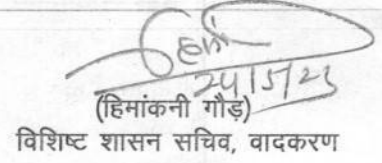 हिमां
24/5/23
(हिमांकनी गौड़)
विशिष्ट शासन सचिव, वादकरण